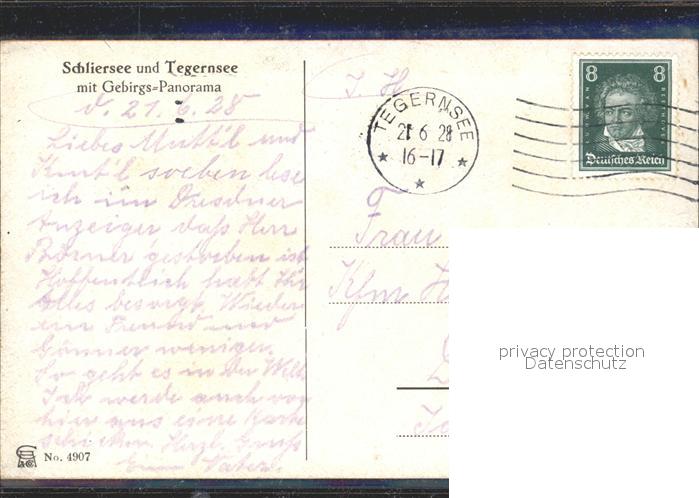 Schliersee und Tegernsee
mit Gebirgs=Panorama
d. 21.6.28
Liebes Mutt'l und
Kurt'l soeben lese
ich im Dresdner
Anzeiger daß Herr
Börner gestorben ist
Hoffentlich habt Ihr
Alles besorgt. Wieder
ein Freund und
Gönner weniger.
So geht es in der Welt
Ich werde auch von
hier aus eine Karte
schicken. Herzl. Gruß
Euer Vater.
No. 4907
TEGERNSEE
21 6 28
16-17
8 8
BEETHOVEN
Deutsches Reich
Frau
Kfm
privacy protection
Datenschutz